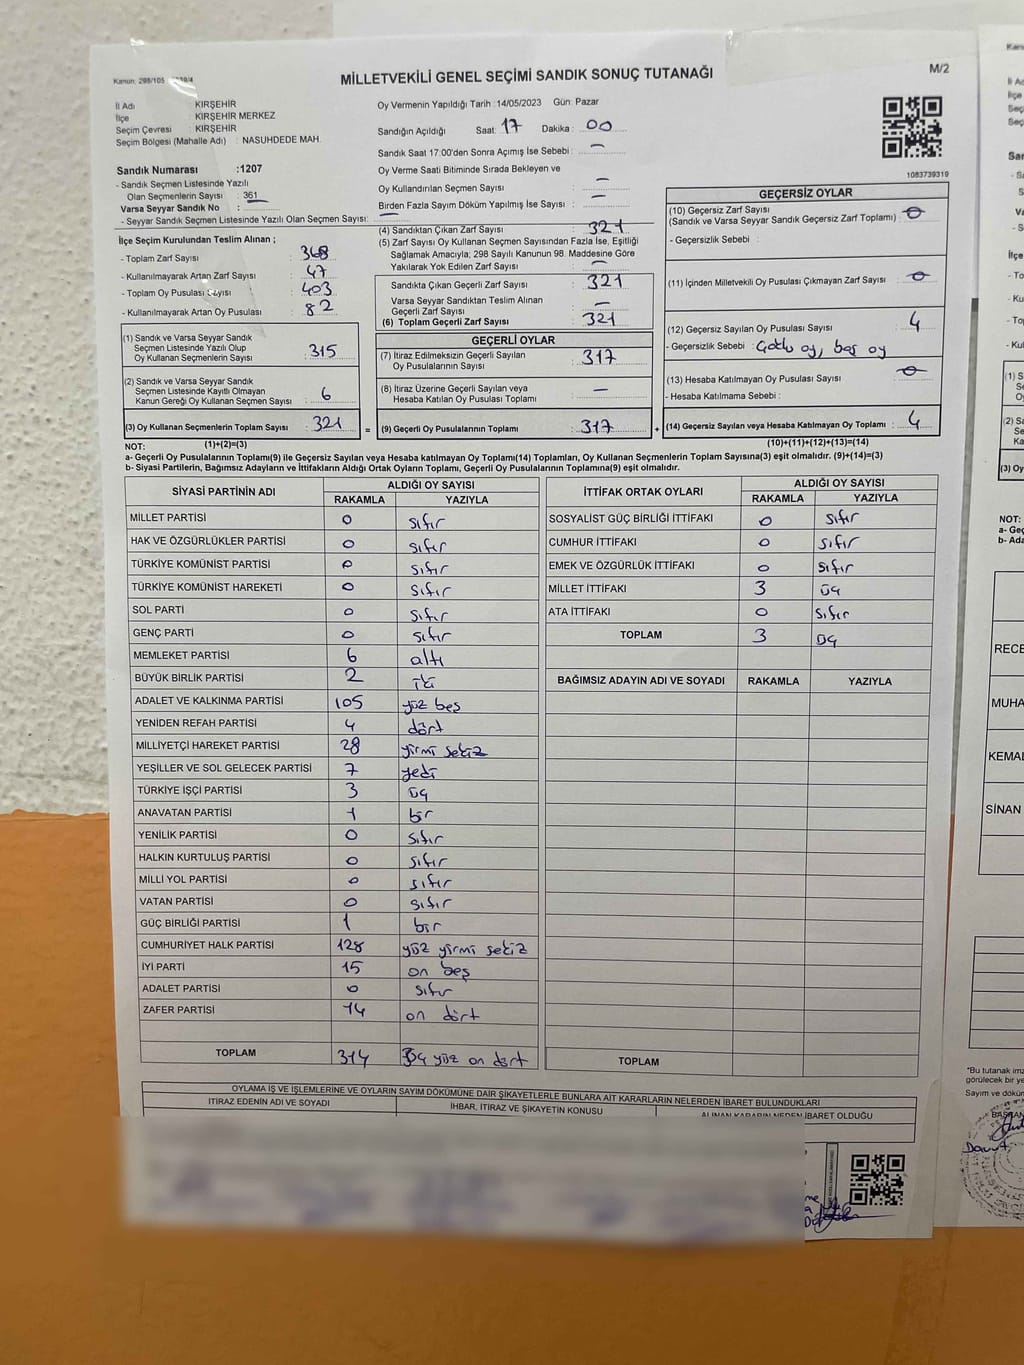 Kanun: 298/105
MİLLETVEKİLİ GENEL SEÇİMİ SANDIK SONUÇ TUTANAĞI
M/2
İl Adı KIRŞEHİR
İlçe KIRŞEHİR MERKEZ
Seçim Çevresi KIRŞEHİR
Seçim Bölgesi (Mahalle Adı) : NASUHDEDE MAH.
Oy Vermenin Yapıldığı Tarih :14/05/2023 Gün: Pazar
Sandığın Açıldığı Saat: 17 Dakika : 00
Sandık Saat 17.00'den Sonra Açımış İse Sebebi : —
Oy Verme Saati Bitiminde Sırada Bekleyen ve
Oy Kullandırılan Seçmen Sayısı : —
Birden Fazla Sayım Döküm Yapılmış İse Sayısı : —
1083739319
Sandık Numarası :1207
- Sandık Seçmen Listesinde Yazılı
Olan Seçmenlerin Sayısı : 361
Varsa Seyyar Sandık No : —
- Seyyar Sandık Seçmen Listesinde Yazılı Olan Seçmen Sayısı: —
İlçe Seçim Kurulundan Teslim Alınan ;
- Toplam Zarf Sayısı : 368
- Kullanılmayarak Artan Zarf Sayısı : 47
- Toplam Oy Pusulası Sayısı : 403
- Kullanılmayarak Artan Oy Pusulası : 82
(1) Sandık ve Varsa Seyyar Sandık
Seçmen Listesinde Yazılı Olup
Oy Kullanan Seçmenlerin Sayısı : 315
(2) Sandık ve Varsa Seyyar Sandık
Seçmen Listesinde Kayıtlı Olmayan
Kanun Gereği Oy Kullanan Seçmen Sayısı : 6
(3) Oy Kullanan Seçmenlerin Toplam Sayısı : 321
(1)+(2)=(3)
(4) Sandıktan Çıkan Zarf Sayısı : 321
(5) Zarf Sayısı Oy Kullanan Seçmen Sayısından Fazla İse, Eşitliği
Sağlamak Amacıyla; 298 Sayılı Kanunun 98. Maddesine Göre
Yakılarak Yok Edilen Zarf Sayısı : —
Sandıkta Çıkan Geçerli Zarf Sayısı : 321
Varsa Seyyar Sandıktan Teslim Alınan
Geçerli Zarf Sayısı : —
(6) Toplam Geçerli Zarf Sayısı : 321
GEÇERLİ OYLAR
(7) İtiraz Edilmeksizin Geçerli Sayılan
Oy Pusulalarının Sayısı : 317
(8) İtiraz Üzerine Geçerli Sayılan veya
Hesaba Katılan Oy Pusulası Toplamı : —
= (9) Geçerli Oy Pusulalarının Toplamı : 317 +
GEÇERSİZ OYLAR
(10) Geçersiz Zarf Sayısı
(Sandık ve Varsa Seyyar Sandık Geçersiz Zarf Toplamı) : 0
- Geçersizlik Sebebi :
(11) İçinden Milletvekili Oy Pusulası Çıkmayan Zarf Sayısı : 0
(12) Geçersiz Sayılan Oy Pusulası Sayısı : 4
- Geçersizlik Sebebi : Çoklu oy, boş oy
(13) Hesaba Katılmayan Oy Pusulası Sayısı : 0
- Hesaba Katılmama Sebebi :
(14) Geçersiz Sayılan veya Hesaba Katılmayan Oy Toplamı : 4
(10)+(11)+(12)+(13)=(14)
NOT:
a- Geçerli Oy Pusulalarının Toplamı(9) ile Geçersiz Sayılan ve Hesaba Katılmayan Oy Pusulaları Toplamı(14) Toplamları, Oy Kullanan Seçmenlerin Toplam Sayısına(3) eşit olmalıdır. (9)+(14)=(3)
b- Siyasi Partilerin, Bağımsız Adayların ve İttifakların Aldığı Ortak Oyların Toplamı, Geçerli Oy Pusulalarının Toplamına(9) eşit olmalıdır.
SİYASİ PARTİNİN ADI ALDIĞI OY SAYISI
RAKAMLA YAZIYLA
MİLLET PARTİSİ 0 sıfır
HAK VE ÖZGÜRLÜKLER PARTİSİ 0 sıfır
TÜRKİYE KOMÜNİST PARTİSİ 0 sıfır
TÜRKİYE KOMÜNİST HAREKETİ 0 sıfır
SOL PARTİ 0 sıfır
GENÇ PARTİ 0 sıfır
MEMLEKET PARTİSİ 6 altı
BÜYÜK BİRLİK PARTİSİ 2 iki
ADALET VE KALKINMA PARTİSİ 105 yüz beş
YENİDEN REFAH PARTİSİ 4 dört
MİLLİYETÇİ HAREKET PARTİSİ 28 yirmi sekiz
YEŞİLLER VE SOL GELECEK PARTİSİ 7 yedi
TÜRKİYE İŞÇİ PARTİSİ 3 üç
ANAVATAN PARTİSİ 1 bir
YENİLİK PARTİSİ 0 sıfır
HALKIN KURTULUŞ PARTİSİ 0 sıfır
MİLLİ YOL PARTİSİ 0 sıfır
VATAN PARTİSİ 0 sıfır
GÜÇ BİRLİĞİ PARTİSİ 1 bir
CUMHURİYET HALK PARTİSİ 128 yüz yirmi sekiz
İYİ PARTİ 15 on beş
ADALET PARTİSİ 0 sıfır
ZAFER PARTİSİ 14 on dört
TOPLAM 314 üç yüz on dört
İTTİFAK ORTAK OYLARI ALDIĞI OY SAYISI
RAKAMLA YAZIYLA
SOSYALİST GÜÇ BİRLİĞİ İTTİFAKI 0 sıfır
CUMHUR İTTİFAKI 0 sıfır
EMEK VE ÖZGÜRLÜK İTTİFAKI 0 sıfır
MİLLET İTTİFAKI 3 üç
ATA İTTİFAKI 0 sıfır
TOPLAM 3 üç
BAĞIMSIZ ADAYIN ADI VE SOYADI RAKAMLA YAZIYLA
TOPLAM
OYLAMA İŞ VE İŞLEMLERİNE VE OYLARIN SAYIM DÖKÜMÜNE DAİR ŞİKAYETLERLE BUNLARA AİT KARARLARIN NELERDEN İBARET BULUNDUKLARI
İTİRAZ EDENİN ADI VE SOYADI İHBAR, İTİRAZ VE ŞİKAYETİN KONUSU ALINAN KARARIN NEDEN İBARET OLDUĞU
NOT:
RECE
MUHA
KEMAL
SİNAN
*Bu tutanak imz
görülecek bir ye
Sayım ve döküm